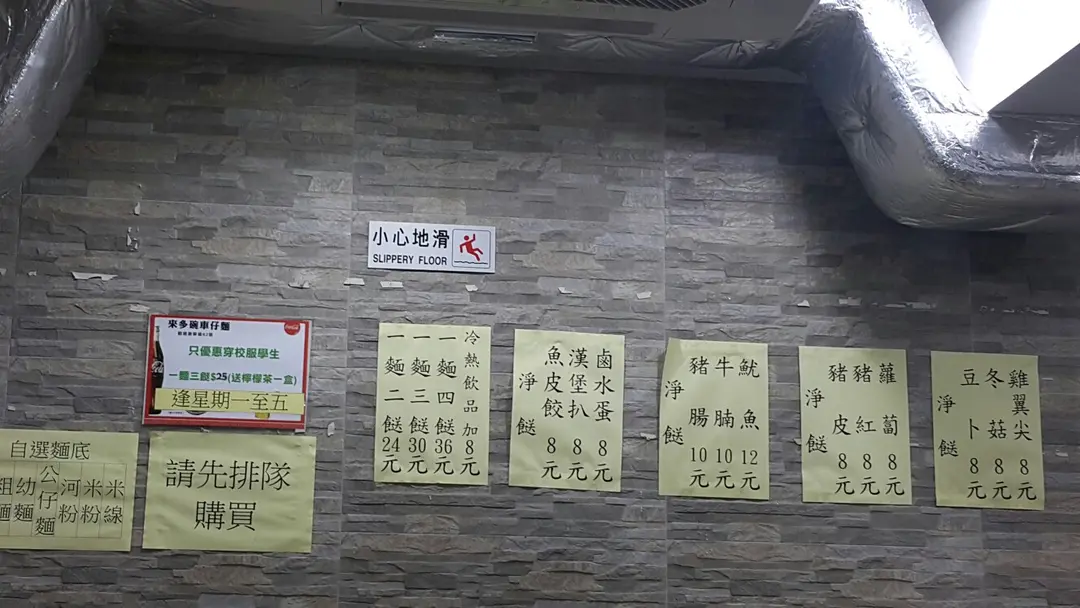 小心地滑
SLIPPERY FLOOR
來多碗車仔麵
只優惠穿校服學生
一麵三餸$25(送檸檬茶一盒)
逢星期一至五
自選麵底
粗麵
幼麵
公仔麵
河粉
米粉
米線
請先排隊
購買
冷熱飲品加8元
一麵四餸36元
一麵三餸30元
一麵二餸24元
鹵水蛋8元
漢堡扒8元
魚皮餃8元
淨餸
魷魚12元
牛腩10元
豬腸10元
淨餸
蘿蔔8元
豬紅8元
豬皮8元
淨餸
雞翼尖8元
冬菇8元
豆卜8元
淨餸